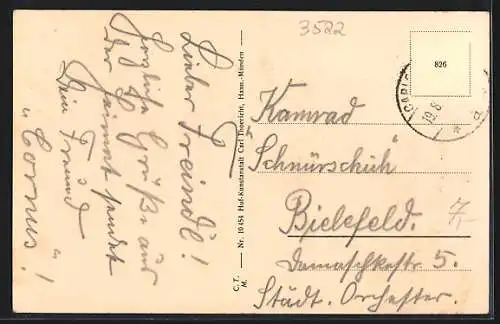 3522
Lieber Freindl!
Herzliche Grüße aus
der Heimat sendet
Dein Freund
"Cornus"!
C. T.
M.
Nr. 10454 Hof-Kunstanstalt Carl Thoericht, Hann.-Münden
826
CARLS
19.8
Kamrad
Schnürschuh
Bielefeld.
Damaschkestr 5.
Städt. Orchester.
7,-